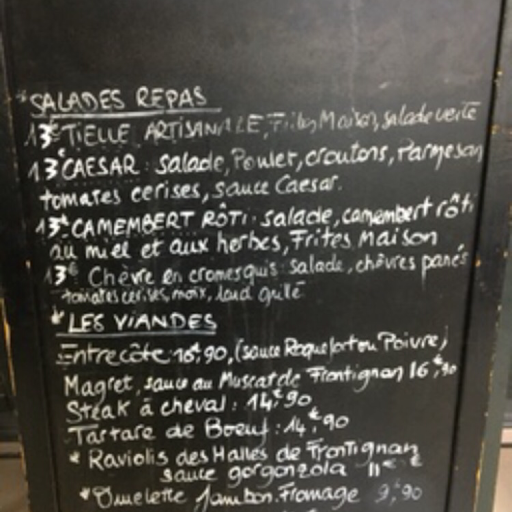 *SALADES REPAS
13€ TIELLE ARTISANALE, Frites Maison, salade verte
13€ CAESAR : salade, Poulet, croutons, Parmesan
tomates cerises, sauce Caesar.
13€ CAMEMBERT RÔTI : salade, camembert rôti
au miel et aux herbes, Frites Maison
13€ Chèvre en cromesquis : salade, chèvres panés
tomates cerises, noix, lard grillé
* LES VIANDES
Entrecôte 16€,90, (sauce Roquefort ou Poivre)
Magret, sauce au Muscat de Frontignan 16€,90
Steak à cheval : 14€,90
Tartare de Boeuf : 14€,90
* Raviolis des Halles de Frontignan
sauce gorgonzola 11€
* Omelette Jambon.Fromage 9€,90